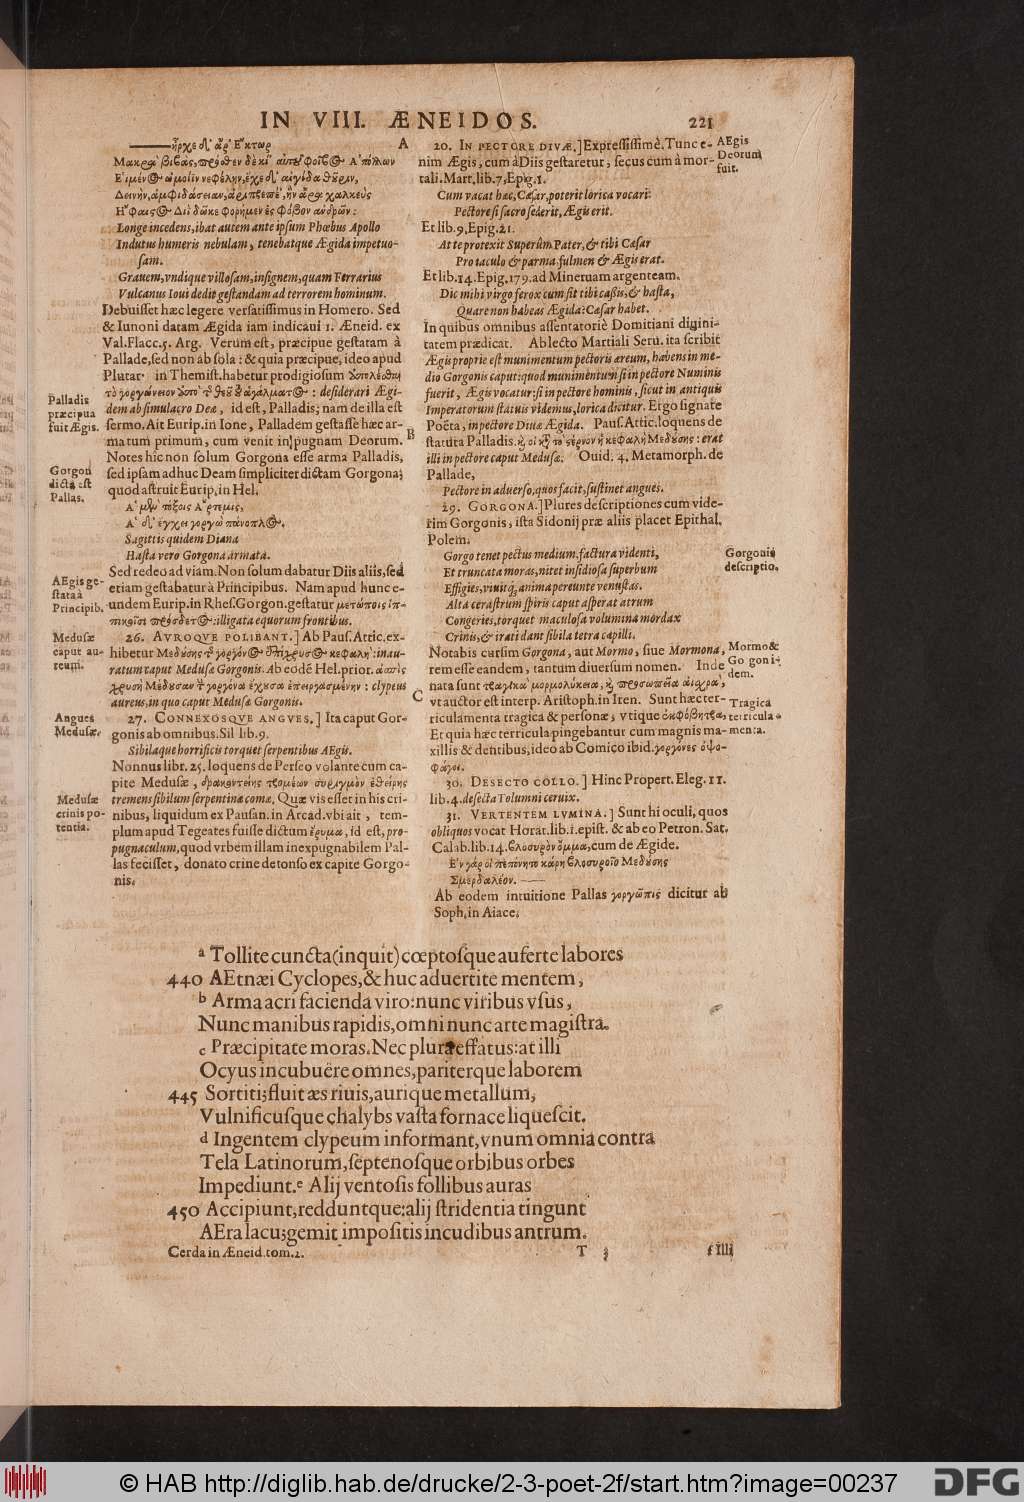 IN VIII. ÆNEIDOS. 221
——ἦρχε δ' ἄρ' Ἕκτωρ
Μακρὰ βιβὰς, πρόσθεν δὲ κί' αὐτῷ Φοῖβος Ἀπόλλων
Εἱμένος ὤμοιϊν νεφέλην, ἔχε δ' αἰγίδα θοῦριν,
Δεινὴν, ἀμφιδάσειαν, ἀριπρεπέ', ἣν ἄρα χαλκεὺς
Ἥφαιστος Διὶ δῶκε φορήμεναι ἐς φόβον ἀνδρῶν:
Longe incedens, ibat autem ante ipsum Phœbus Apollo
Indutus humeris nebulam, tenebatque Ægida impetuo-
sam.
Grauem, vndique villosam, insignem, quam Ferrarius
Vulcanus Ioui dedit gestandam ad terrorem hominum.
Debuisset hæc legere versatissimus in Homero. Sed
& Iunoni datam Ægida iam indicaui 1. Æneid. ex
Val. Flacc. 5. Arg. Verum est, præcipue gestatam à
Pallade, sed non ab sola: & quia præcipue, ideo apud
Plutar. in Themist. habetur prodigiosum
τὸ γοργόνειον ἀπὸ τῆς θεοῦ ἀγάλματος: desiderari Ægi-
dem ab simulacro Deæ, id est, Palladis; nam de illa est
sermo. Ait Eurip. in Ione, Palladem gestasse hæc ar-
matum primum, cum venit in pugnam Deorum.
Notes hîc non solum Gorgona esse arma Palladis,
sed ipsam adhuc Deam simpliciter dictam Gorgona;
quod astruit Eurip. in Hel.
Ἁ μὲν τόξοις Ἄρτεμις,
Ἁ δ' ἔγχει γοργὼ πάνοπλος.
Sagittis quidem Diana
Hasta vero Gorgona armata.
Sed redeo ad viam. Non solum dabatur Diis aliis, sed
etiam gestabatur à Principibus. Nam apud hunc e-
undem Eurip. in Rhes. Gorgon. gestatur μετώποις ἱπ-
πικοῖσι πρόσδετος: illigata equorum frontibus.
26. AVROQVE POLIBANT.] Ab Paus. Attic. ex-
hibetur Μεδούσης τῆς γοργόνος ἐπίχρυσος κεφαλή: inau-
ratum caput Medusæ Gorgonis. Ab eodē Hel. prior. ἀσπὶς
χρυσῆ Μέδουσαν τὴν γοργόνα ἔχουσα ἐπειργασμένην: clypeus
aureus, in quo caput Medusæ Gorgonis.
27. CONNEXOSQVE ANGVES.] Ita caput Gor-
gonis ab omnibus. Sil lib. 9.
Sibilaque horrificis torquet serpentibus AEgis.
Nonnus libr. 25. loquens de Perseo volante cum ca-
pite Medusæ, δρακοντείης τρομέων συριγμὸν ἐθείρης
tremens sibilum serpentinæ comæ. Quæ vis esset in his cri-
nibus, liquidum ex Pausan. in Arcad. vbi ait, tem-
plum apud Tegeates fuisse dictum ἔρυμα, id est, pro-
pugnaculum, quod vrbem illam inexpugnabilem Pal-
las fecisset, donato crine detonso ex capite Gorgo-
nis.
Palladis
præcipua
fuit Ægis.
Gorgon
dicta est
Pallas.
AEgis ge-
stata à
Principib.
Medusæ
caput au-
reum.
Angues
Medusæ.
Medusæ
crinis po-
tentia.
A
B
C
20. IN PECTORE DIVÆ.] Expressissimè. Tunc e-
nim Ægis, cum à Diis gestaretur, secus cum à mor-
tali. Mart. lib. 7. Epig. 1.
Cum vacat hæc, Cæsar, poterit lorica vocari:
Pectore si sacro sederit, Ægis erit.
Et lib. 9. Epig. 21.
At te protexit Superûm Pater, & tibi Cæsar
Pro iaculo & parma fulmen & Ægis erat.
Et lib. 14. Epig. 179. ad Mineruam argenteam.
Dic mihi virgo ferox cum sit tibi cassis, & hasta,
Quare non habeas Ægida: Cæsar habet.
In quibus omnibus assentatoriè Domitiani digini-
tatem prædicat. Ab lecto Martiali Seru. ita scribit
Ægis proprie est munimentum pectoris æreum, habens in me-
dio Gorgonis caput: quod munimentum si in pectore Numinis
fuerit, Ægis vocatur: si in pectore hominis, sicut in antiquis
Imperatorum statuis videmus, lorica dicitur. Ergo signate
Poëta, in pectore Diuæ Ægida. Paus. Attic. loquens de
statuta Palladis. καὶ οἱ κατὰ τὸ στέρνον ἡ κεφαλὴ Μεδούσης: erat
illi in pectore caput Medusæ. Ouid. 4. Metamorph. de
Pallade,
Pectore in aduerso, quos facit, sustinet angues.
29. GORGONA.] Plures descriptiones cum vide-
rim Gorgonis, ista Sidonij præ aliis placet Epithal.
Polem.
Gorgo tenet pectus medium, factura videnti,
Et truncata moras, nitet insidiosa superbum
Effigies, viuitq́, anima pereunte venustas.
Alta cerastrum spiris caput asperat atrum
Congeries, torquet maculosa volumina mordax
Crinis, & irati dant sibila tetra capilli.
Notabis cursim Gorgona, aut Mormo, siue Mormona,
rem esse eandem, tantum diuersum nomen. Inde
nata sunt τραγικὰ μορμολύκεια, καὶ προσωπεῖα αἰσχρὰ,
vt auctor est interp. Aristoph. in Iren. Sunt hæc ter-
riculamenta tragica & personæ, vtique ἐκφόβητρα,
Et quia hæc terricula pingebantur cum magnis ma-
xillis & dentibus, ideo ab Comico ibid. γοργόνες ὀψο-
φάγοι.
30. DESECTO COLLO.] Hinc Propert. Eleg. 11.
lib. 4. desecta Tolumni ceruix.
31. VERTENTEM LVMINA.] Sunt hi oculi, quos
obliquos vocat Horat. lib. 1. epist. & ab eo Petron. Sat.
Calab. lib. 14. βλοσυρὸν ὄμμα, cum de Ægide.
Ἐν γάρ οἱ πεπόνητο κάρη βλοσυροῖο Μεδούσης
Σμερδαλέον.——
Ab eodem intuitione Pallas γοργῶπις dicitur ab
Soph. in Aiace.
AEgis
Deorum
fuit.
Gorgonis
descriptio.
Mormo &
Go gon i-
dem.
Tragica
terricula-
menta.
a Tollite cuncta (inquit) cœptosque auferte labores
440 AEtnæi Cyclopes, & huc aduertite mentem,
b Arma acri facienda viro: nunc viribus vsus,
Nunc manibus rapidis, omni nunc arte magistra.
c Præcipitate moras. Nec plura effatus: at illi
Ocyus incubuêre omnes, pariterque laborem
445 Sortiti; fluit æs riuis, aurique metallum,
Vulnificusque chalybs vasta fornace liquescit.
d Ingentem clypeum informant, vnum omnia contra
Tela Latinorum, septenosque orbibus orbes
Impediunt. e Alij ventosis follibus auras
450 Accipiunt, redduntque: alij stridentia tingunt
AEra lacu; gemit impositis incudibus antrum.
Cerda in Æneid. tom. 2. T 3 f Illi
© HAB http://diglib.hab.de/drucke/2-3-poet-2f/start.htm?image=00237
DFG